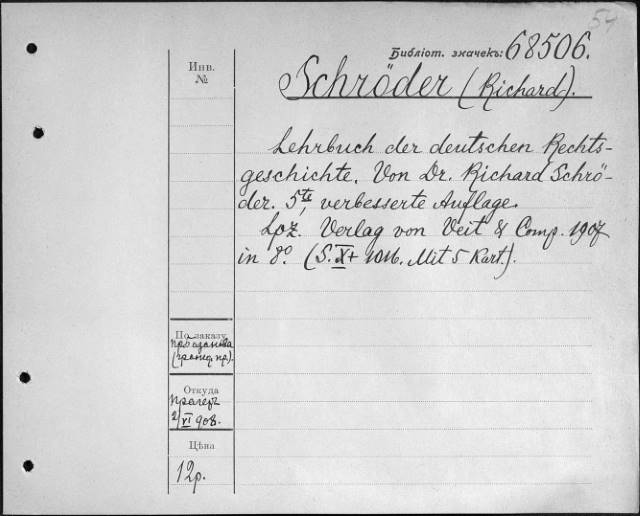 54
Библіот. значекъ: 68506.
Инв.
№
Schröder (Richard).
Lehrbuch der deutschen Rechts-
geschichte. Von Dr. Richard Schrö-
der. 5te, verbesserte Auflage.
Lpz. Verlag von Veit & Comp. 1907
in 8º. (S. X + 1016. Mit 5 Kart.).
По заказу
Откуда
2/VI 908.
Цѣна
12р.